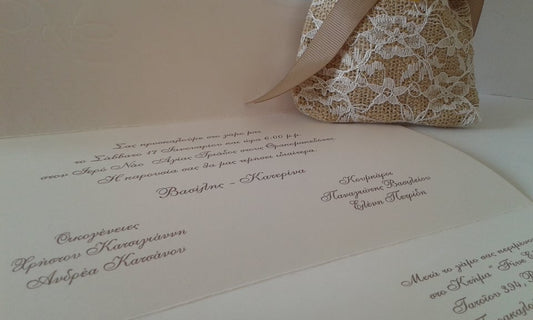 Σας προσκαλούμε στο γάμο μας
το Σάββατο 17 Ιανουαρίου και ώρα 6:00 μ.μ.
στον Ιερό Ναό Αγίας Τριάδος στους Θρακομακεδόνες.
Η παρουσία σας θα μας τιμήσει ιδιαίτερα.
Βασίλης - Κατερίνα
Κουμπάροι
Παναγιώτης Βασιλείου
Ελένη Πετρίδη
Οικογένειες
Χρήστου Κατσιγιάννη
Ανδρέα Κατσάνου
Μετά το γάμο σας περιμένο
στο Κτήμα "
Τατοΐου 394,
Παρακαλ